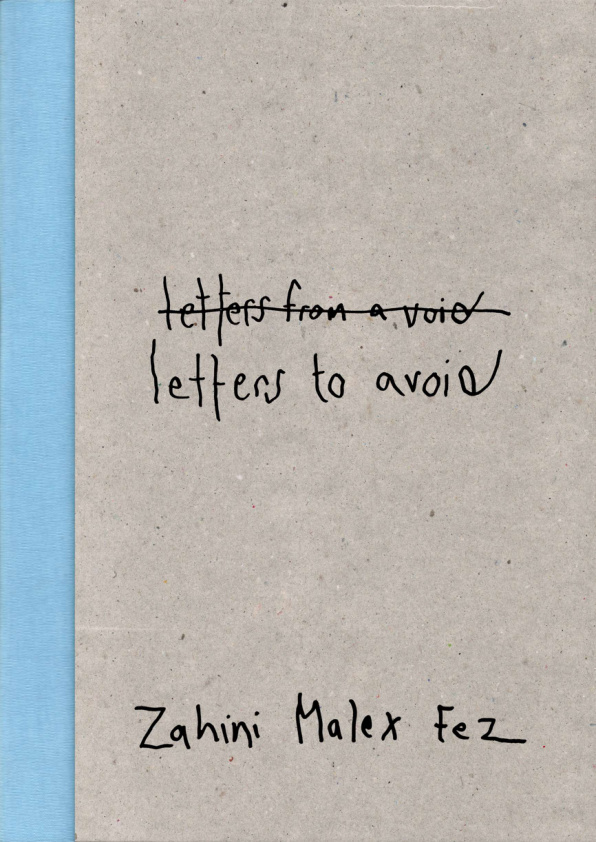 letters from a void
letters to avoid
Zahini Malex Fez